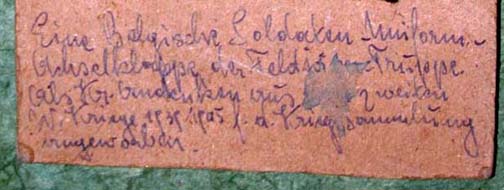 Eine Belgische Soldaten Uniform-
Achselklappe, der Feld Truppe
als Kr. Andenken aus zweiten
W. Kriege 1939/1945 f. d. Kriegssammlung